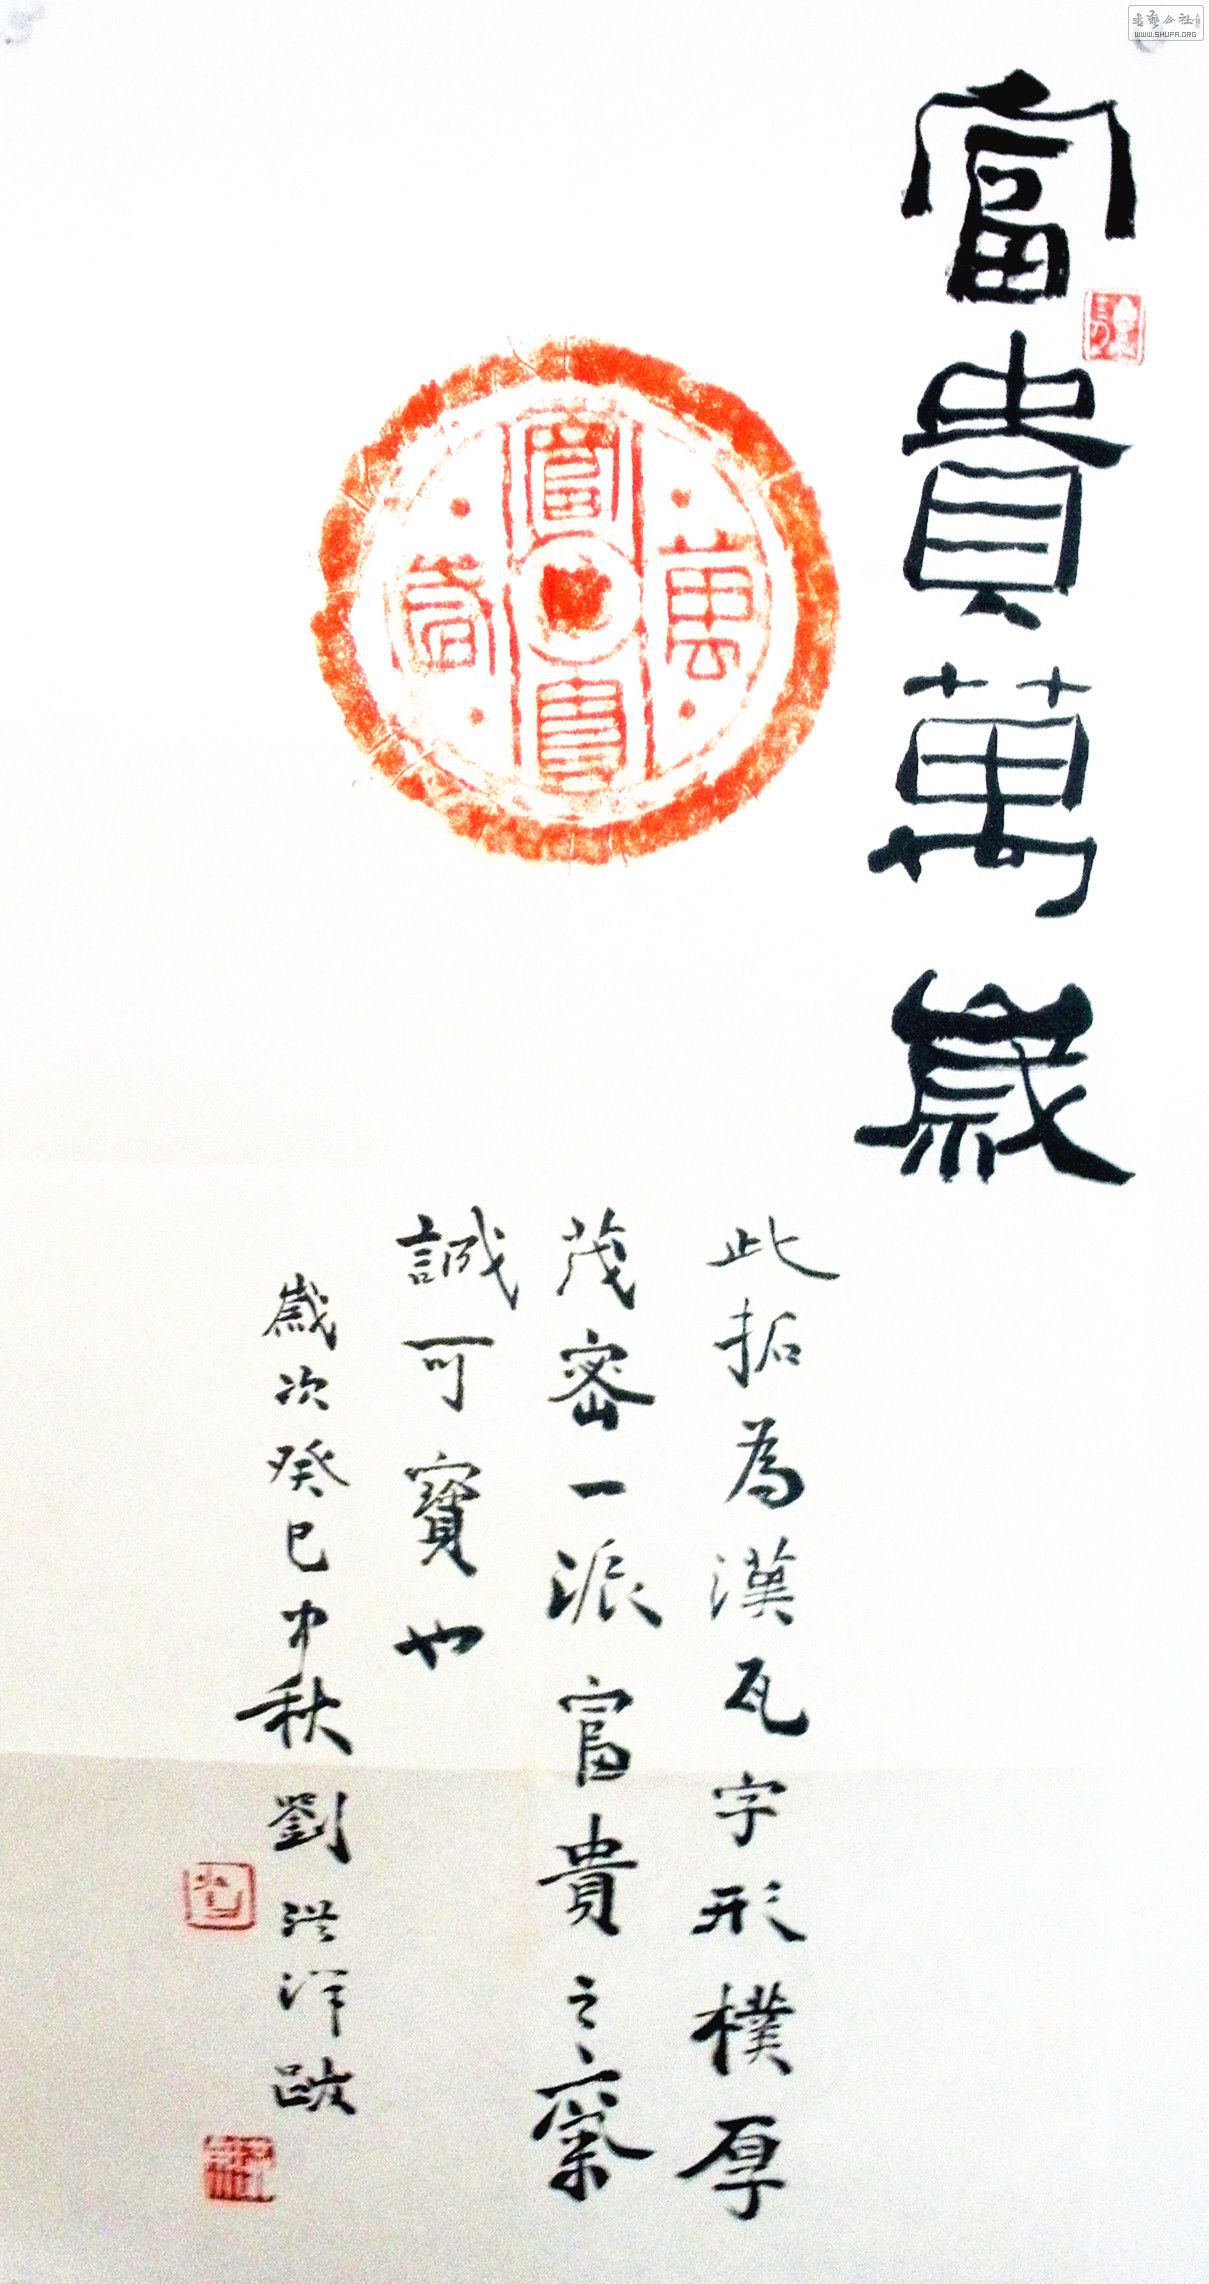 書藝公社
WWW.SHUFA.ORG
富貴萬歲
富貴萬歲
此拓為漢瓦字形樸厚
茂密一派富貴之
誠可寶也
歲次癸巳中秋劉洪洋跋